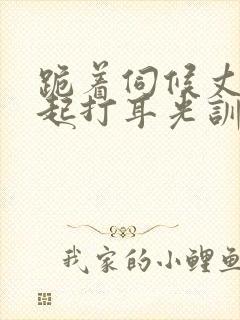 跪着伺候丈
起打耳光訓
我家的小鲤鱼